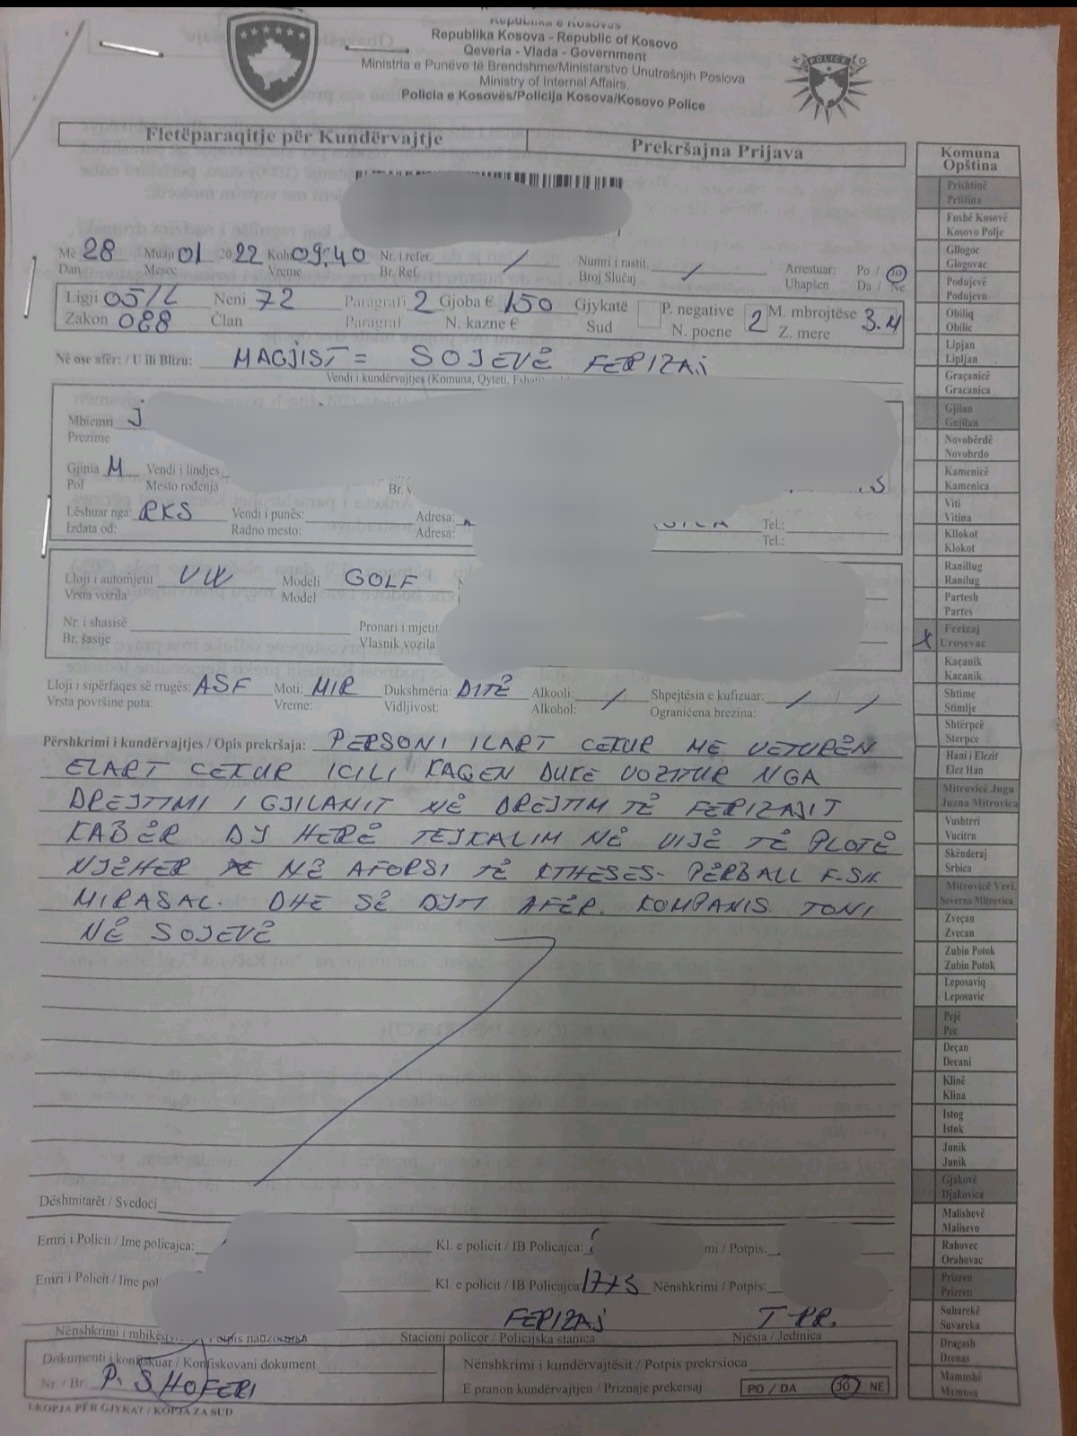 Republika e Kosovës
Republika Kosova - Republic of Kosovo
Qeveria - Vlada - Government
Ministria e Punëve të Brendshme/Ministarstvo Unutrašnjih Poslova
Ministry of Internal Affairs
Policia e Kosovës/Policija Kosova/Kosovo Police
POLICE
Fletëparaqitje për Kundërvajtje Prekršajna Prijava
Më 28 Muaji 01 2022 Koh 09:40 Nr. i refer. / Numri i rastit. / Arrestuar: Po / Jo
Dan Mesec Vreme Br. Ref. Broj Slučaj Uhapšen Da / Ne
Ligji 05/L Neni 72 Paragrafi 2 Gjoba € 150 Gjykatë P. negative 2 M. mbrojtëse 3.4
Zakon 088 Član Paragraf N. kazne € Sud N. poene Z. mere
Në ose afër: / U ili Blizu: MAGJIST = SOJEVË FERIZAJ
Vendi i kundërvajtjes (Komuna, Qyteti,
Mbiemri J
Prezime
Gjinia M Vendi i lindjes
Pol Mesto rođenja Br.
Lëshuar nga: RKS Vendi i punës: Adresa: Tel.:
Izdata od: Radno mesto: Adresa: Tel.:
Lloji i automjetit VW Modeli GOLF
Vrsta vozila Model
Nr. i shasisë Pronari i mjetit
Br. šasije Vlasnik vozila
Lloji i sipërfaqes së rrugës: ASF Moti: MIR Dukshmëria: DITË Alkooli: / Shpejtësia e kufizuar: / / /
Vrsta površine puta: Vreme: Vidljivost: Alkohol: Ograničena brezina:
Përshkrimi i kundërvajtjes / Opis prekršaja: PERSONI ILART CEKUR ME VETURËN
ELART CEKUR ICILI KAQEN DUKE VOZITUR NGA
DREJTIMI I GJILANIT NË DREJTIM TË FERIZAJT
KABËR DY HERË TEJKALIM NË VIJË TË PLOTË
NJËHER NË AFORSI TË KTHESES- PËRBALL F.SH.
MIRASAL. DHE SË DYTI AFËR. KOMPANIS TONI
NË SOJEVË
Dëshmitarët / Svedoci
Emri i Policit / Ime policajca: Kl. e policit / IB Policajca: mi / Potpis:
Emri i Policit / Ime pol Kl. e policit / IB Policajca Nënshkrimi / Potpis:
FERIZAJ T-PR.
Nënshkrimi i mbikëqy Stacioni policor / Policijska stanica Njësia / Jedinica
Dokumenti i konfiskuar / Konfiskovani dokument Nënshkrimi i kundërvajtësit / Potpis prekrsioca
Nr. / Br. P. SHOFERI E pranon kundërvajtjen / Priznaje prekersaj PO / DA JO NE
I.KOPJA PËR GJYKAT / KOPJA ZA SUD
Komuna
Opština
Prishtinë
Priština
Fushë Kosovë
Kosovo Polje
Gllogoc
Glogovac
Podujevë
Podujevo
Obiliq
Obilic
Lipjan
Lipljan
Graçanicë
Gracanica
Gjilan
Gnjilan
Novobërdë
Novobrdo
Kamenicë
Kamenica
Viti
Vitina
Kllokot
Klokot
Ranillug
Ranilug
Partesh
Partes
X Ferizaj
Urosevac
Kaçanik
Kacanik
Shtime
Stimlje
Shtërpcë
Sterpce
Hani i Elezit
Elez Han
Mitrovicë Jugu
Juzna Mitrovica
Vushtrri
Vucitrn
Skënderaj
Srbica
Mitrovicë Veri.
Severna Mitrovica
Zveçan
Zvecan
Zubin Potok
Zubin Potok
Leposaviq
Leposavic
Pejë
Pec
Deçan
Decani
Klinë
Klina
Istog
Istok
Junik
Junik
Gjakovë
Djakovica
Malishevë
Malisevo
Rahovec
Orahovac
Prizren
Prizren
Suharekë
Suvareka
Dragash
Drenas
Mamushë
Mamusa